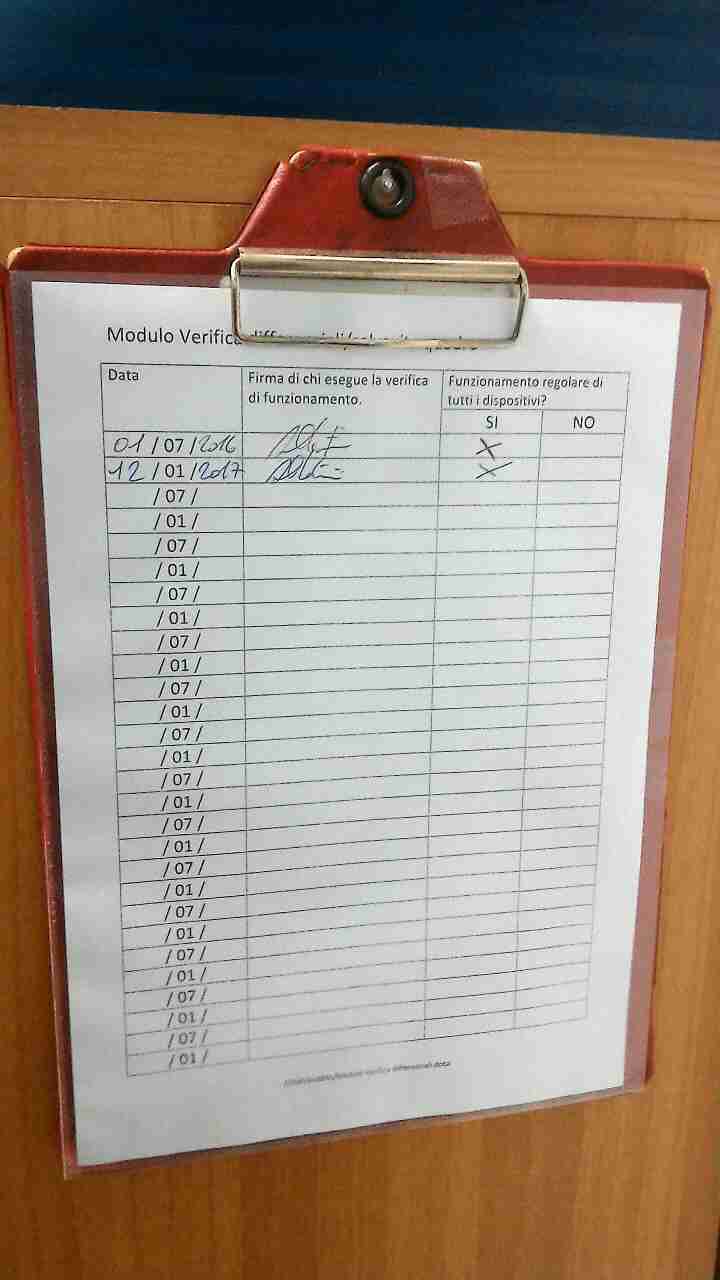 Modulo Verifica
Data
Firma di chi esegue la verifica
di funzionamento.
Funzionamento regolare di
tutti i dispositivi?
SI NO
01 / 07 / 2016 X
12 / 01 / 2017 X
/ 07 /
/ 01 /
/ 07 /
/ 01 /
/ 07 /
/ 01 /
/ 07 /
/ 01 /
/ 07 /
/ 01 /
/ 07 /
/ 01 /
/ 07 /
/ 01 /
/ 07 /
/ 01 /
/ 07 /
/ 01 /
/ 07 /
/ 01 /
/ 07 /
/ 01 /
/ 07 /
/ 01 /
/ 07 /
/ 01 /